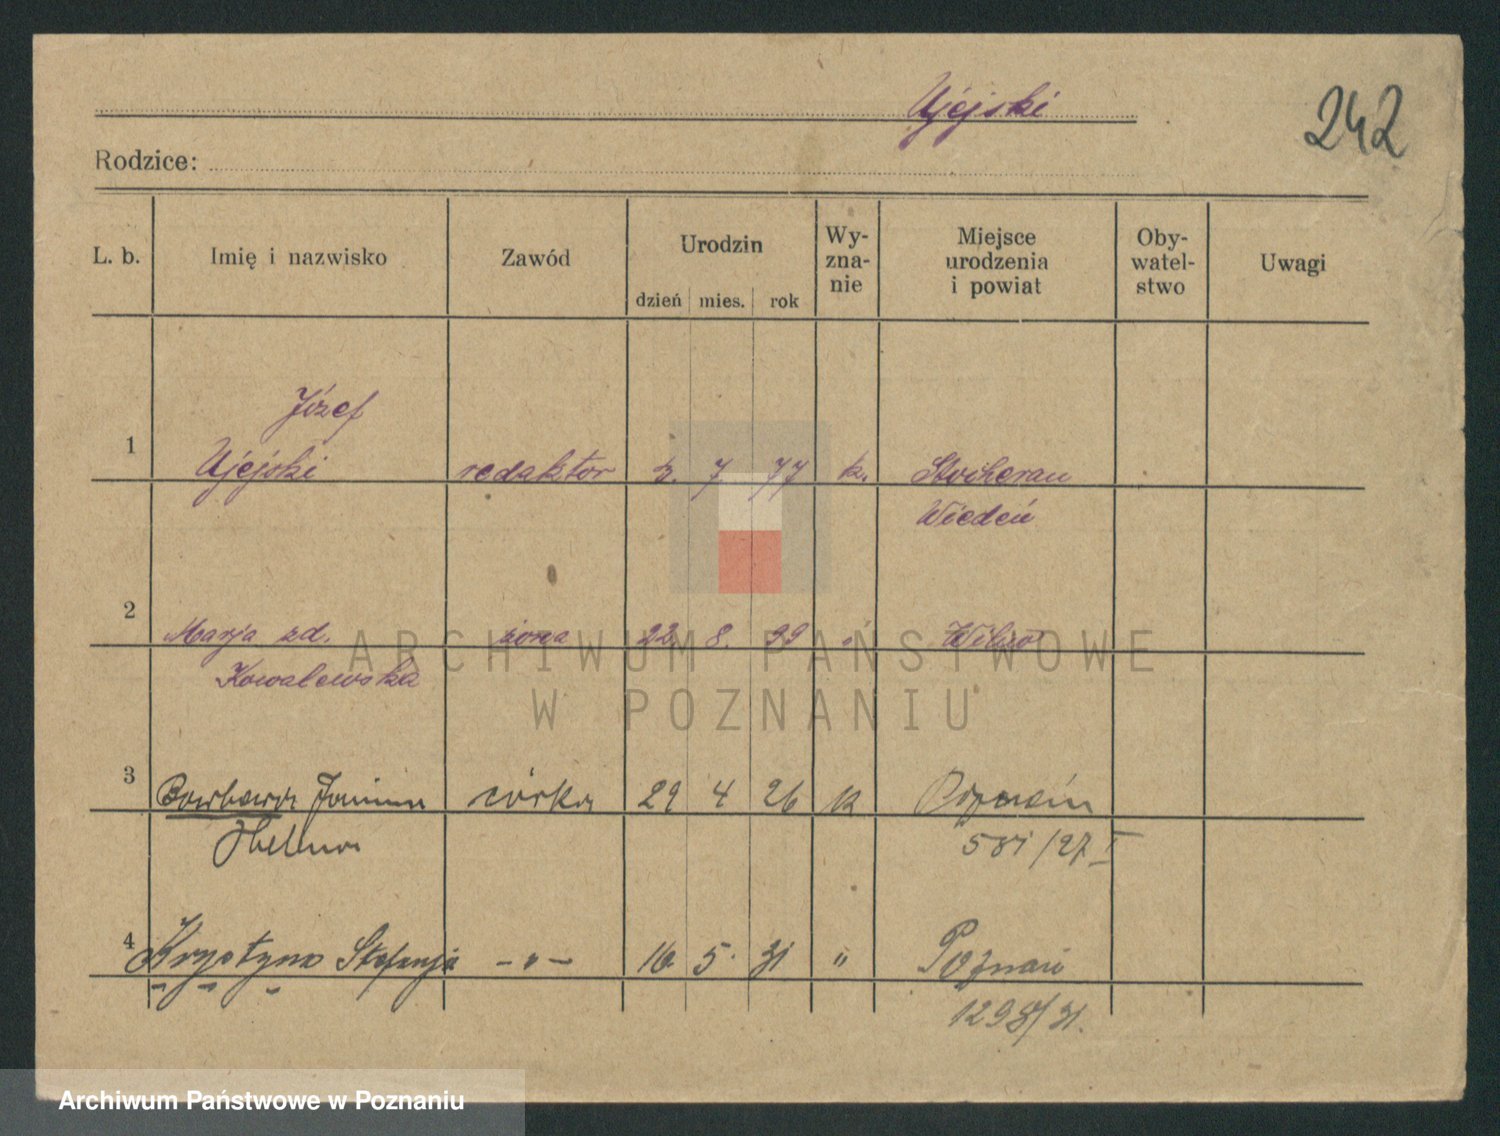 Ujejski
242
Rodzice:
L. b. Imię i nazwisko Zawód Urodzin Wy-zna-nie Miejsce urodzenia i powiat Oby-watel-stwo Uwagi
dzień mies. rok
Józef
1 Ujejski redaktor 7 77 k. Stockerau
Wiedeń
2 Marja zd. żona 22. 8. 99 " Wilno
Kowalewska
3 Barbara Janina córka 29 4 26 k Poznań
Helena
581/27 I
4 Krystyna Stefanja -"- 16 5. 31 " Poznań
1298/31.
ARCHIWUM PAŃSTWOWE
W POZNANIU
Archiwum Państwowe w Poznaniu